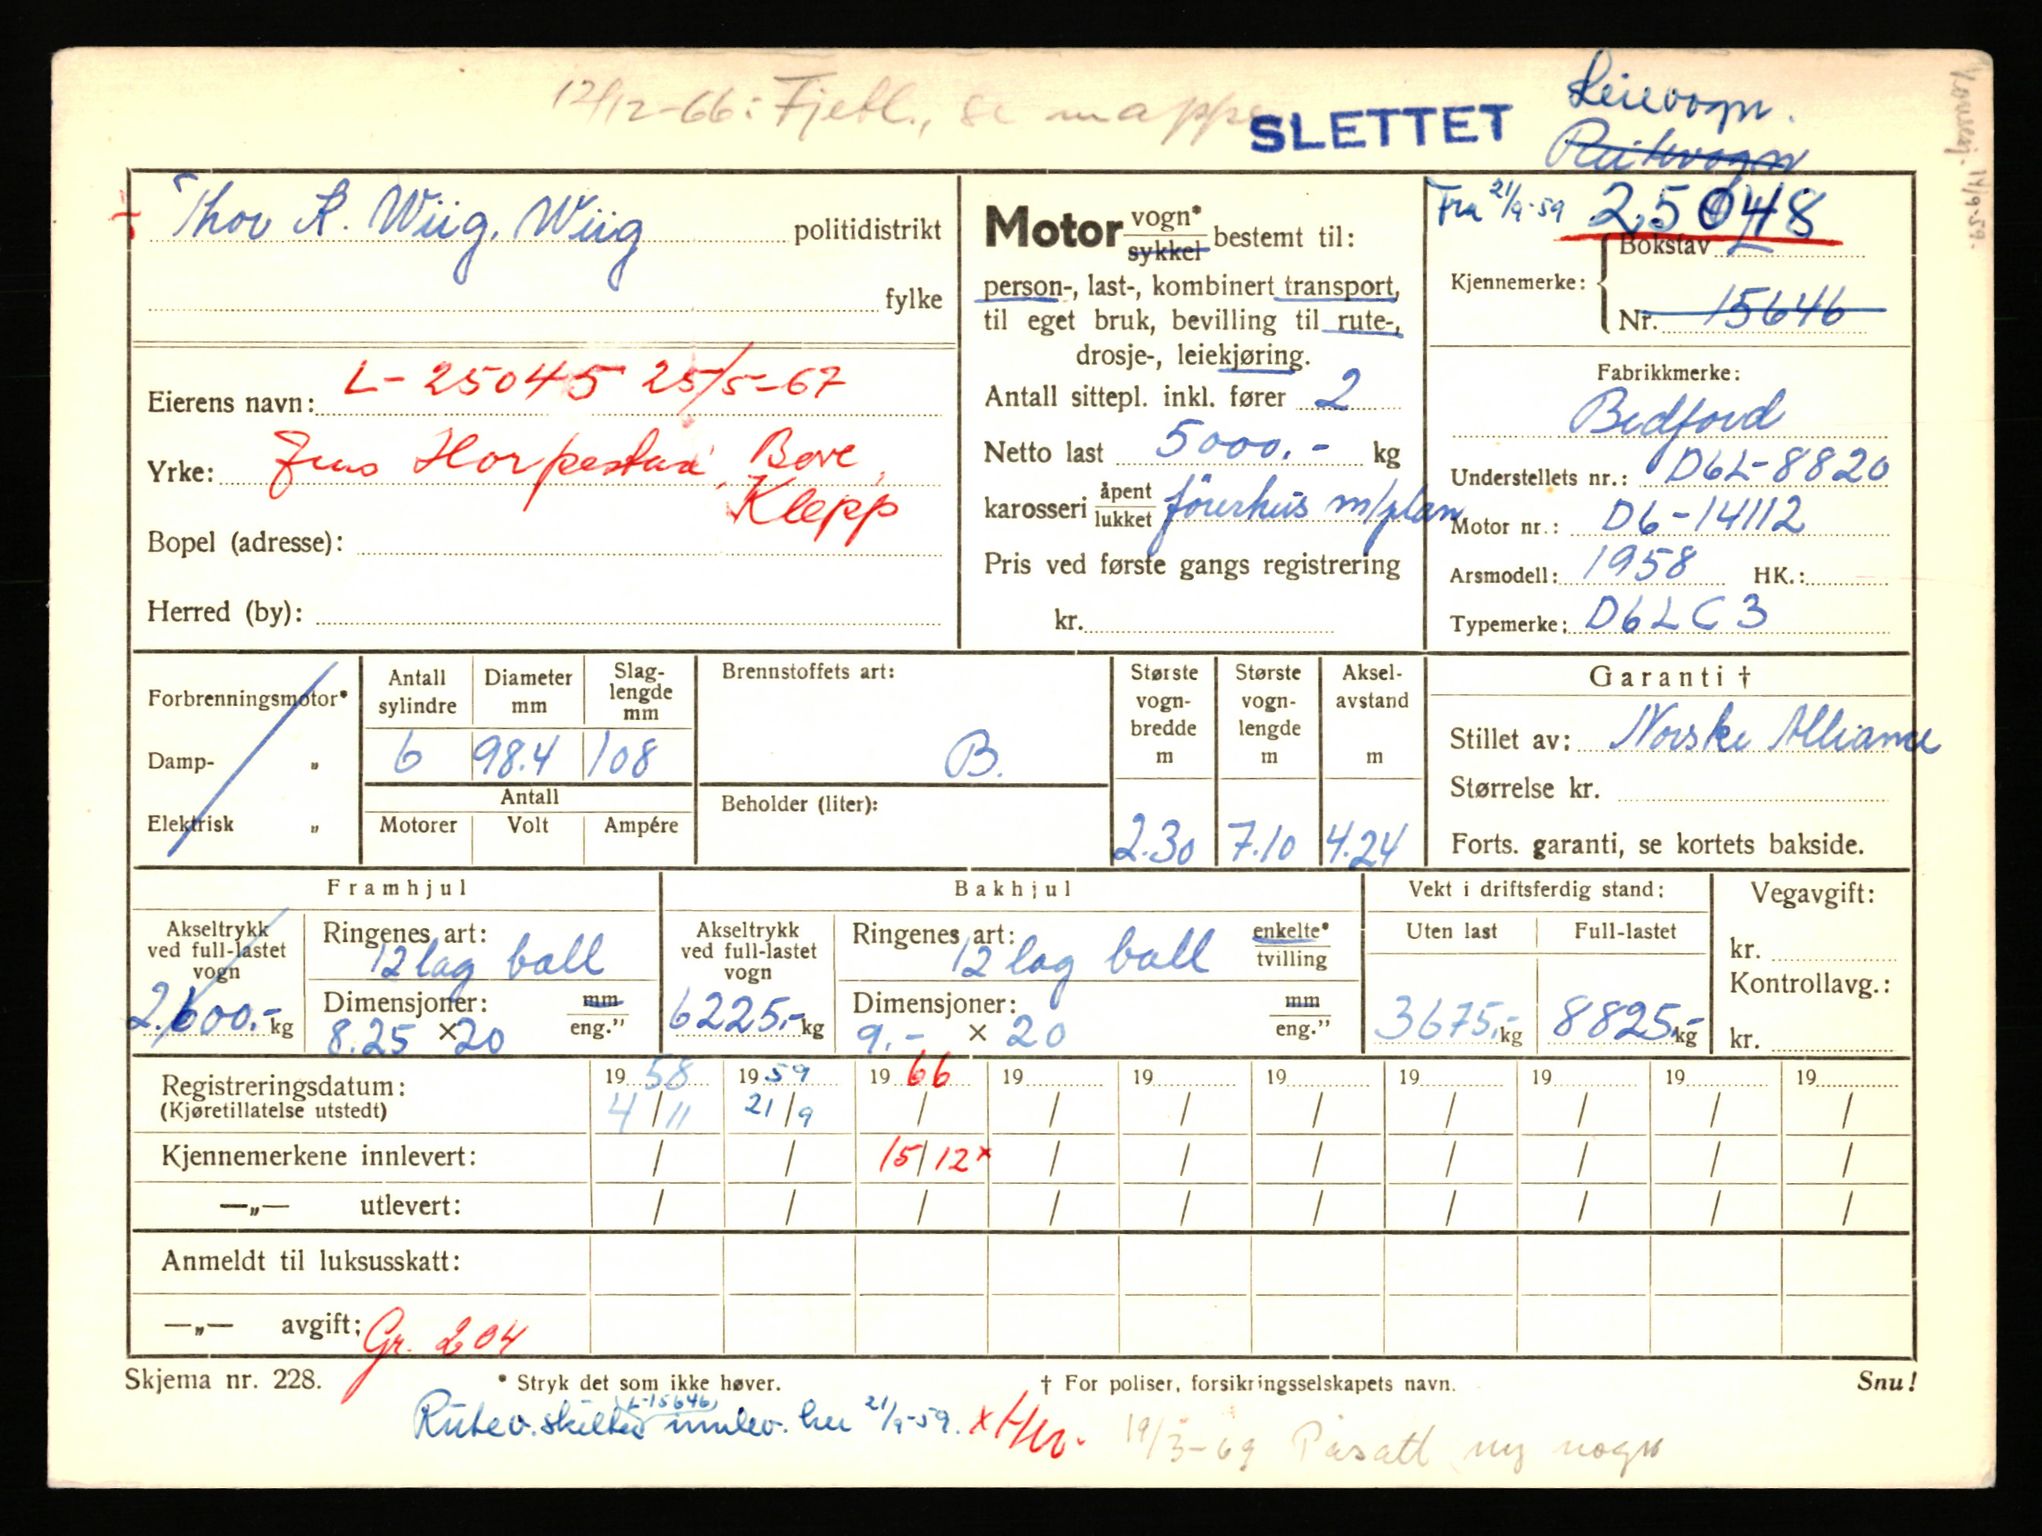 12/12-66: Fjetl., se mappe
SLETTET
Leievogn.
Rutevogn
Thor R. Wiig. Wiig politidistrikt
fylke
L- 25045 25/5-67
Eierens navn:
Yrke: Jens Horpestad, Bore,
Klepp
Bopel (adresse):
Herred (by):
Motor vogn* sykkel bestemt til:
person-, last-, kombinert transport,
til eget bruk, bevilling til rute-,
drosje-, leiekjøring.
Antall sittepl. inkl. fører 2
Netto last 5000.- kg
karosseri åpent lukket förerhus m/plan
Pris ved første gangs registrering
kr.
Fra 21/9-59 25048
Kjennemerke: Bokstav L
Nr. 15646
Fabrikkmerke:
Bedford
Understellets nr.: D6L-8820
Motor nr.: D6-14112
Arsmodell: 1958 HK.:
Typemerke: D6LC3
Forbrenningsmotor*
Damp- „
Elektrisk „
Antall sylindre Diameter mm Slag-lengde mm
6 98.4 108
Antall
Motorer Volt Ampére
Brennstoffets art:
B.
Beholder (liter):
Største vogn-bredde m Største vogn-lengde m Aksel-avstand m
2.30 7.10 4.24
Garanti †
Stillet av: Norske Alliance
Størrelse kr.
Forts. garanti, se kortets bakside.
Framhjul
Akseltrykk ved full-lastet vogn
2.600.- kg
Ringenes art:
12 lag ball
Dimensjoner: mm eng."
8.25 × 20
Bakhjul
Akseltrykk ved full-lastet vogn
6225.- kg
Ringenes art: enkelte* tvilling
12 lag ball
Dimensjoner: mm eng."
9.- × 20
Vekt i driftsferdig stand:
Uten last Full-lastet
3675.- kg 8825.- kg
Vegavgift:
kr.
Kontrollavg.:
kr.
Registreringsdatum: 19 58 19 59 19 66 19 19 19 19 19 19 19
(Kjøretillatelse utstedt) 4/11 21/9 / / / / / / / /
Kjennemerkene innlevert: / / 15/12 x / / / / / / /
—„— utlevert: / / / / / / / / / /
Anmeldt til luksusskatt:
—„— avgift: Gr. 204
Skjema nr. 228. * Stryk det som ikke høver. † For poliser, forsikringsselskapets navn. Snu!
L-15646
Rutev. skilter innlev. her 21/9-59. x
19/3-69 Påsatt ny vogn